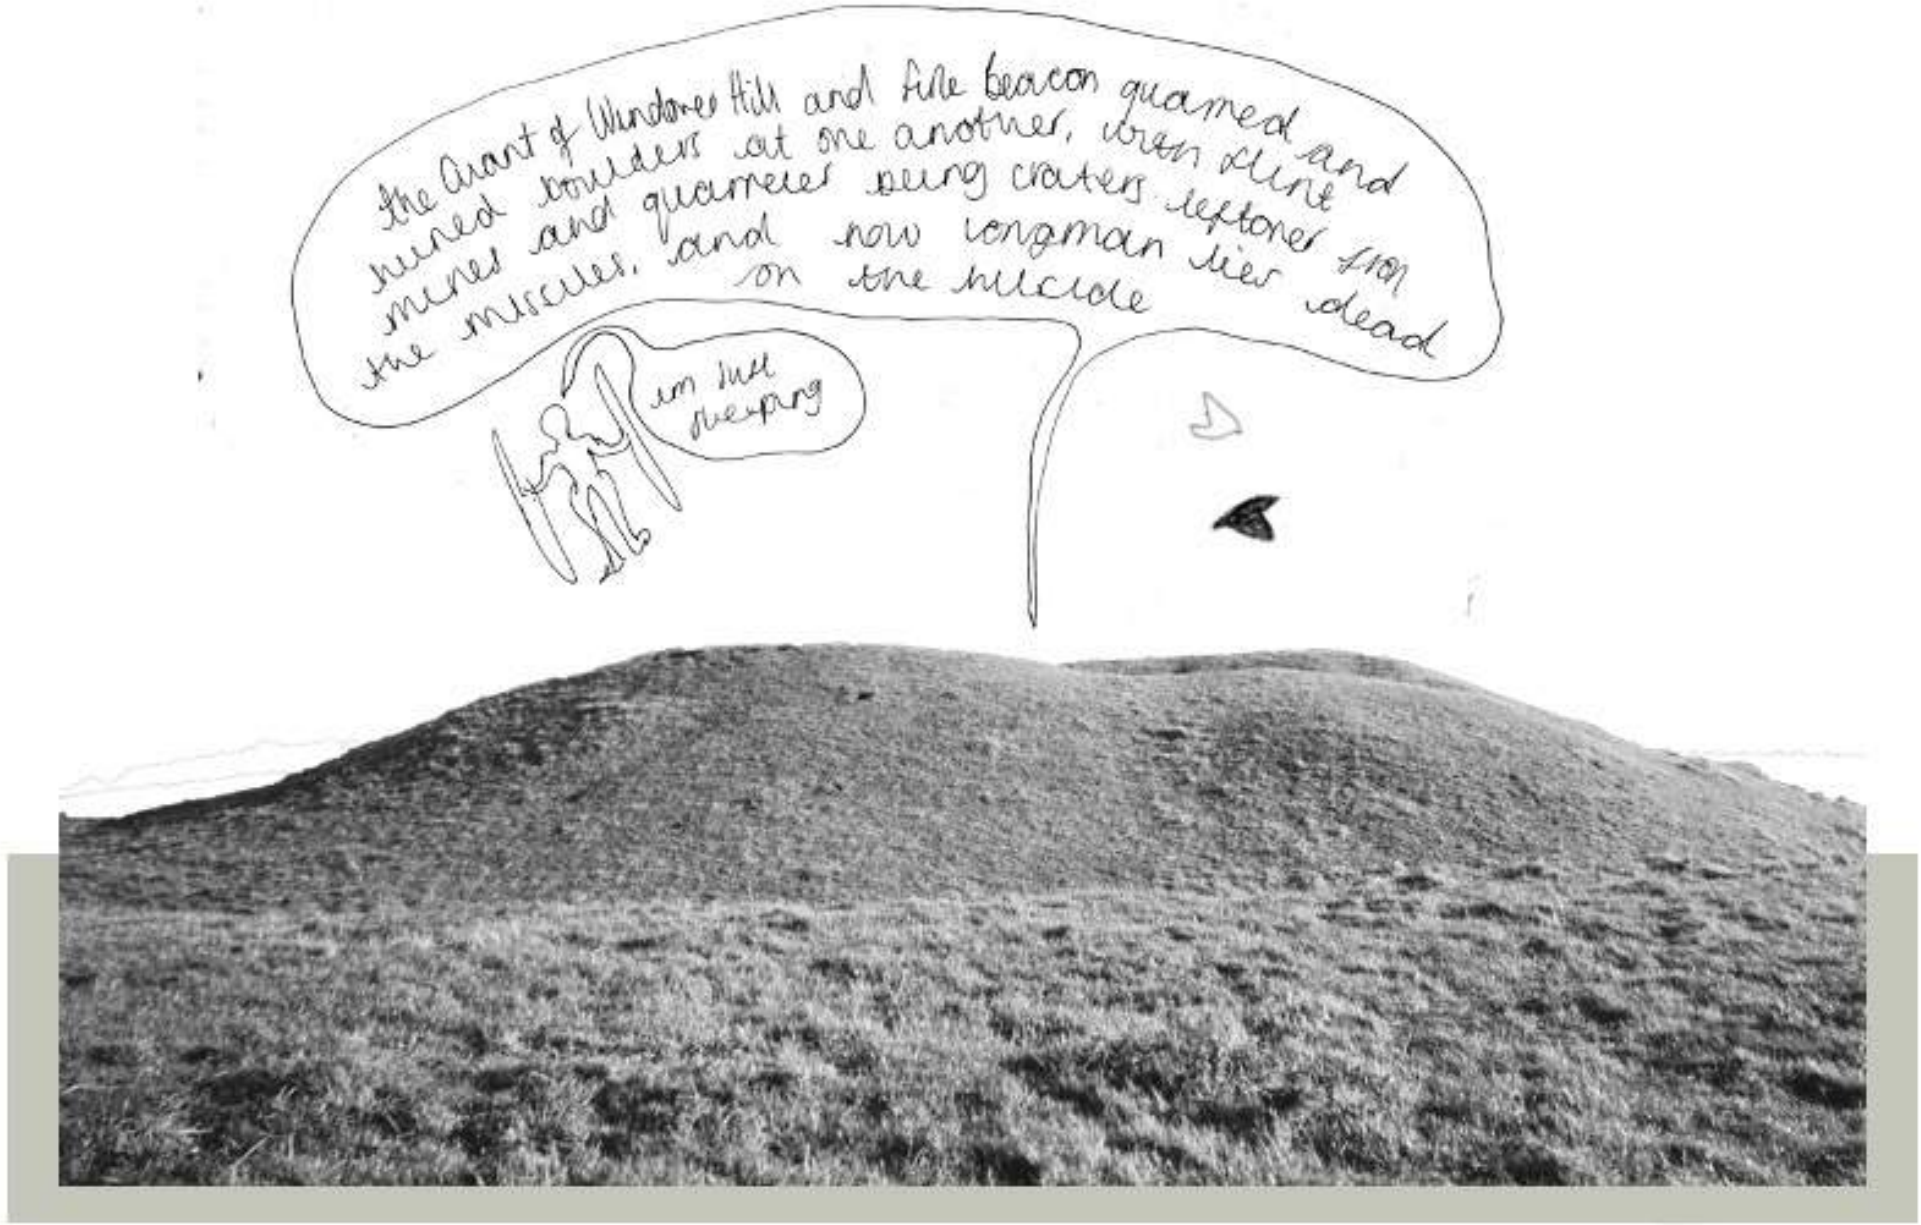 the Giant of Windover Hill and firle beacon quarrelled and
hurled boulders at one another, with flint
mines and quarries being craters leftover from
the missiles, and now longman lies dead
on the hillside
im just
sleeping